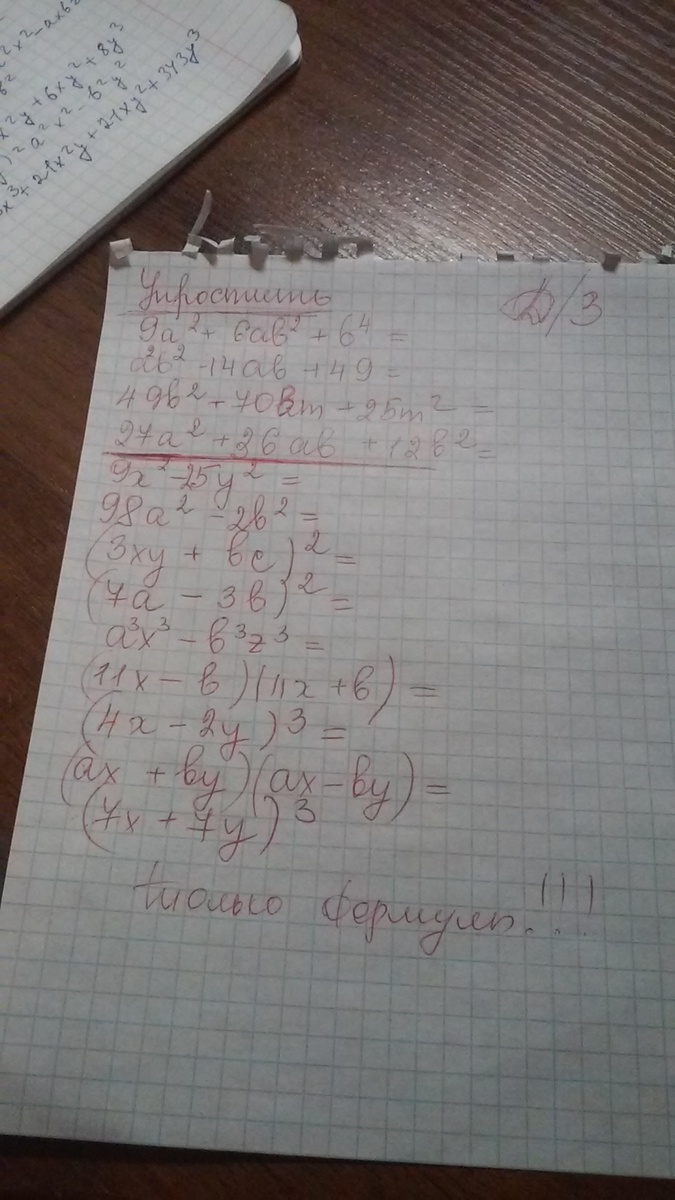 ²x²-axb²
x²y+6xy²+8y³
y)=a²x²-b²y²
x³+21x²y+21xy²+343y³
Упростить
Д/З
9a²+6ab²+b⁴=
a²b²-14ab+49=
49b²+70bm+25m²=
27a²+36ab+12b²=
9x²-25y²=
98a²-2b²=
(3xy+bc)²=
(7a-3b)²=
a³x³-b³z³=
(11x-b)(11x+b)=
(4x-2y)³=
(ax+by)(ax-by)=
(7x+7y)³
только формулы!!!